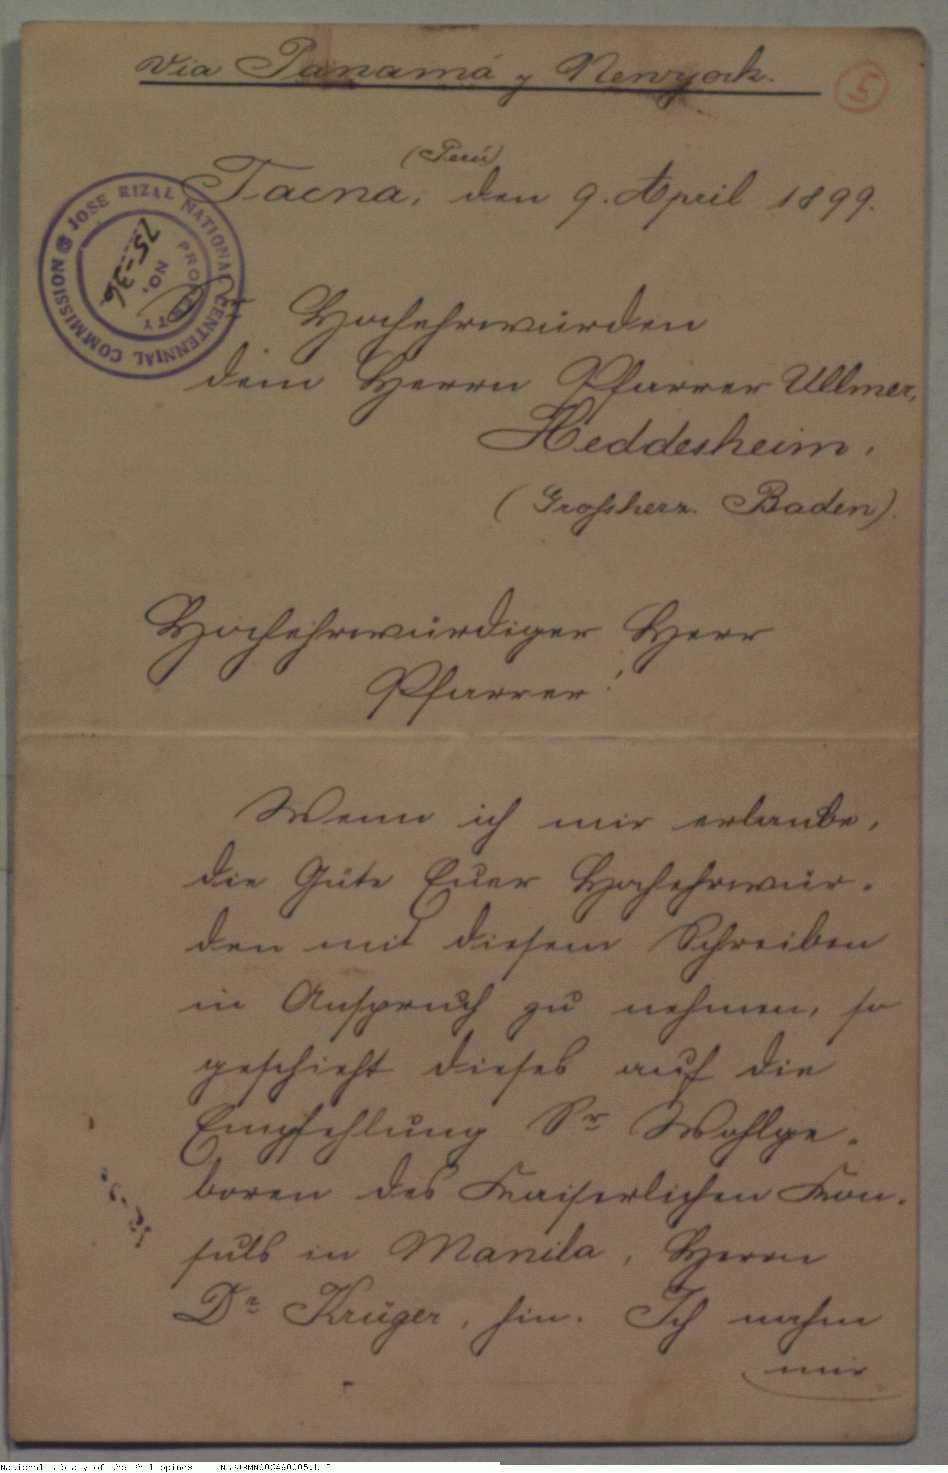 via Panamá y Newyork.
5
(Perú)
Tacna, den 9. April 1899.
JOSE RIZAL NATIONAL CENTENNIAL COMMISSION
PROPERTY
NO.
75-36
Sr Hochehrwürden
dem Herrn Pfarrer Ullmer,
Heddesheim,
(Grossherz. Baden).
Hochehrwürdiger Herr
Pfarrer!
Wenn ich mir erlaube,
die Güte Euer Hochehrwür-
den mit diesem Schreiben
in Anspruch zu nehmen, so
geschieht dieses auf die
Empfehlung Sr Wohlge-
boren des Kaiserlichen Kon-
suls in Manila, Herrn
Dr Krüger, hin. Ich nahm
mir
National Library of the Philippines